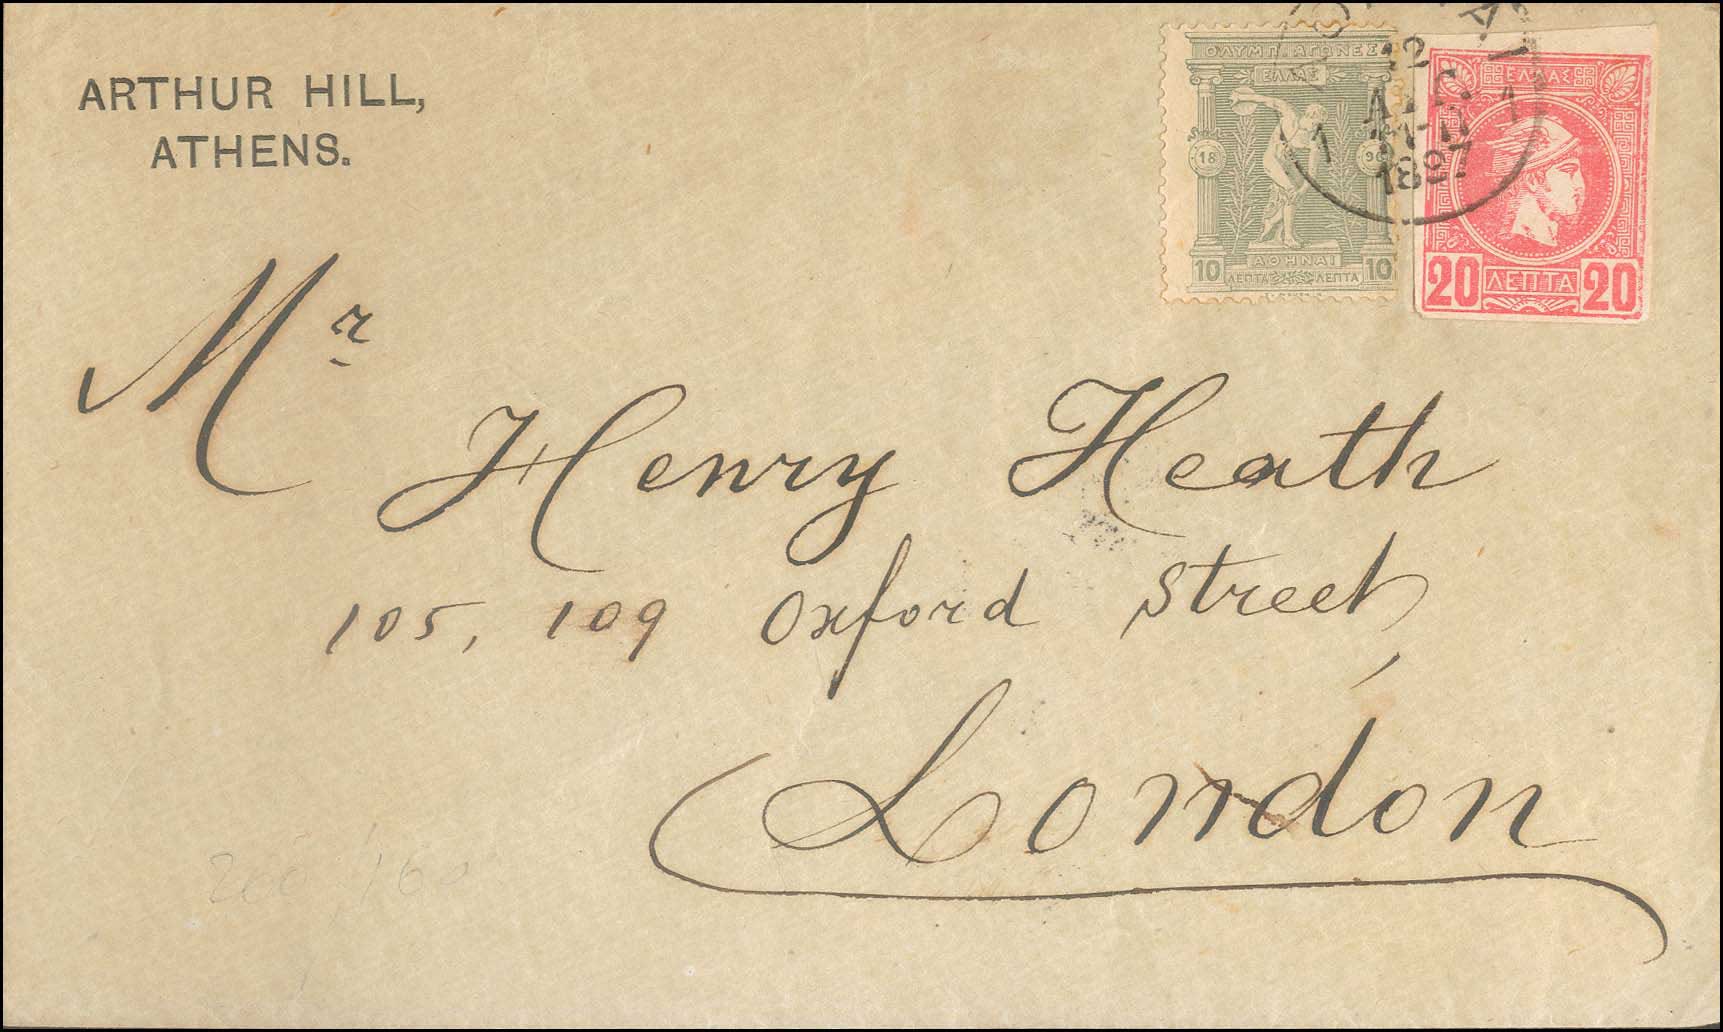 ARTHUR HILL,
ATHENS.
ΟΛΥΜΠ. ΑΓΩΝΕΣ
ΕΛΛΑΣ
18 96
ΑΘΗΝΑΙ
10 ΛΕΠΤΑ ΛΕΠΤΑ 10
ΕΛΛΑΣ
20 ΛΕΠΤΑ 20
12
1 1
1897
Mr
Henry Heath
105, 109 Oxford Street,
London
200 160